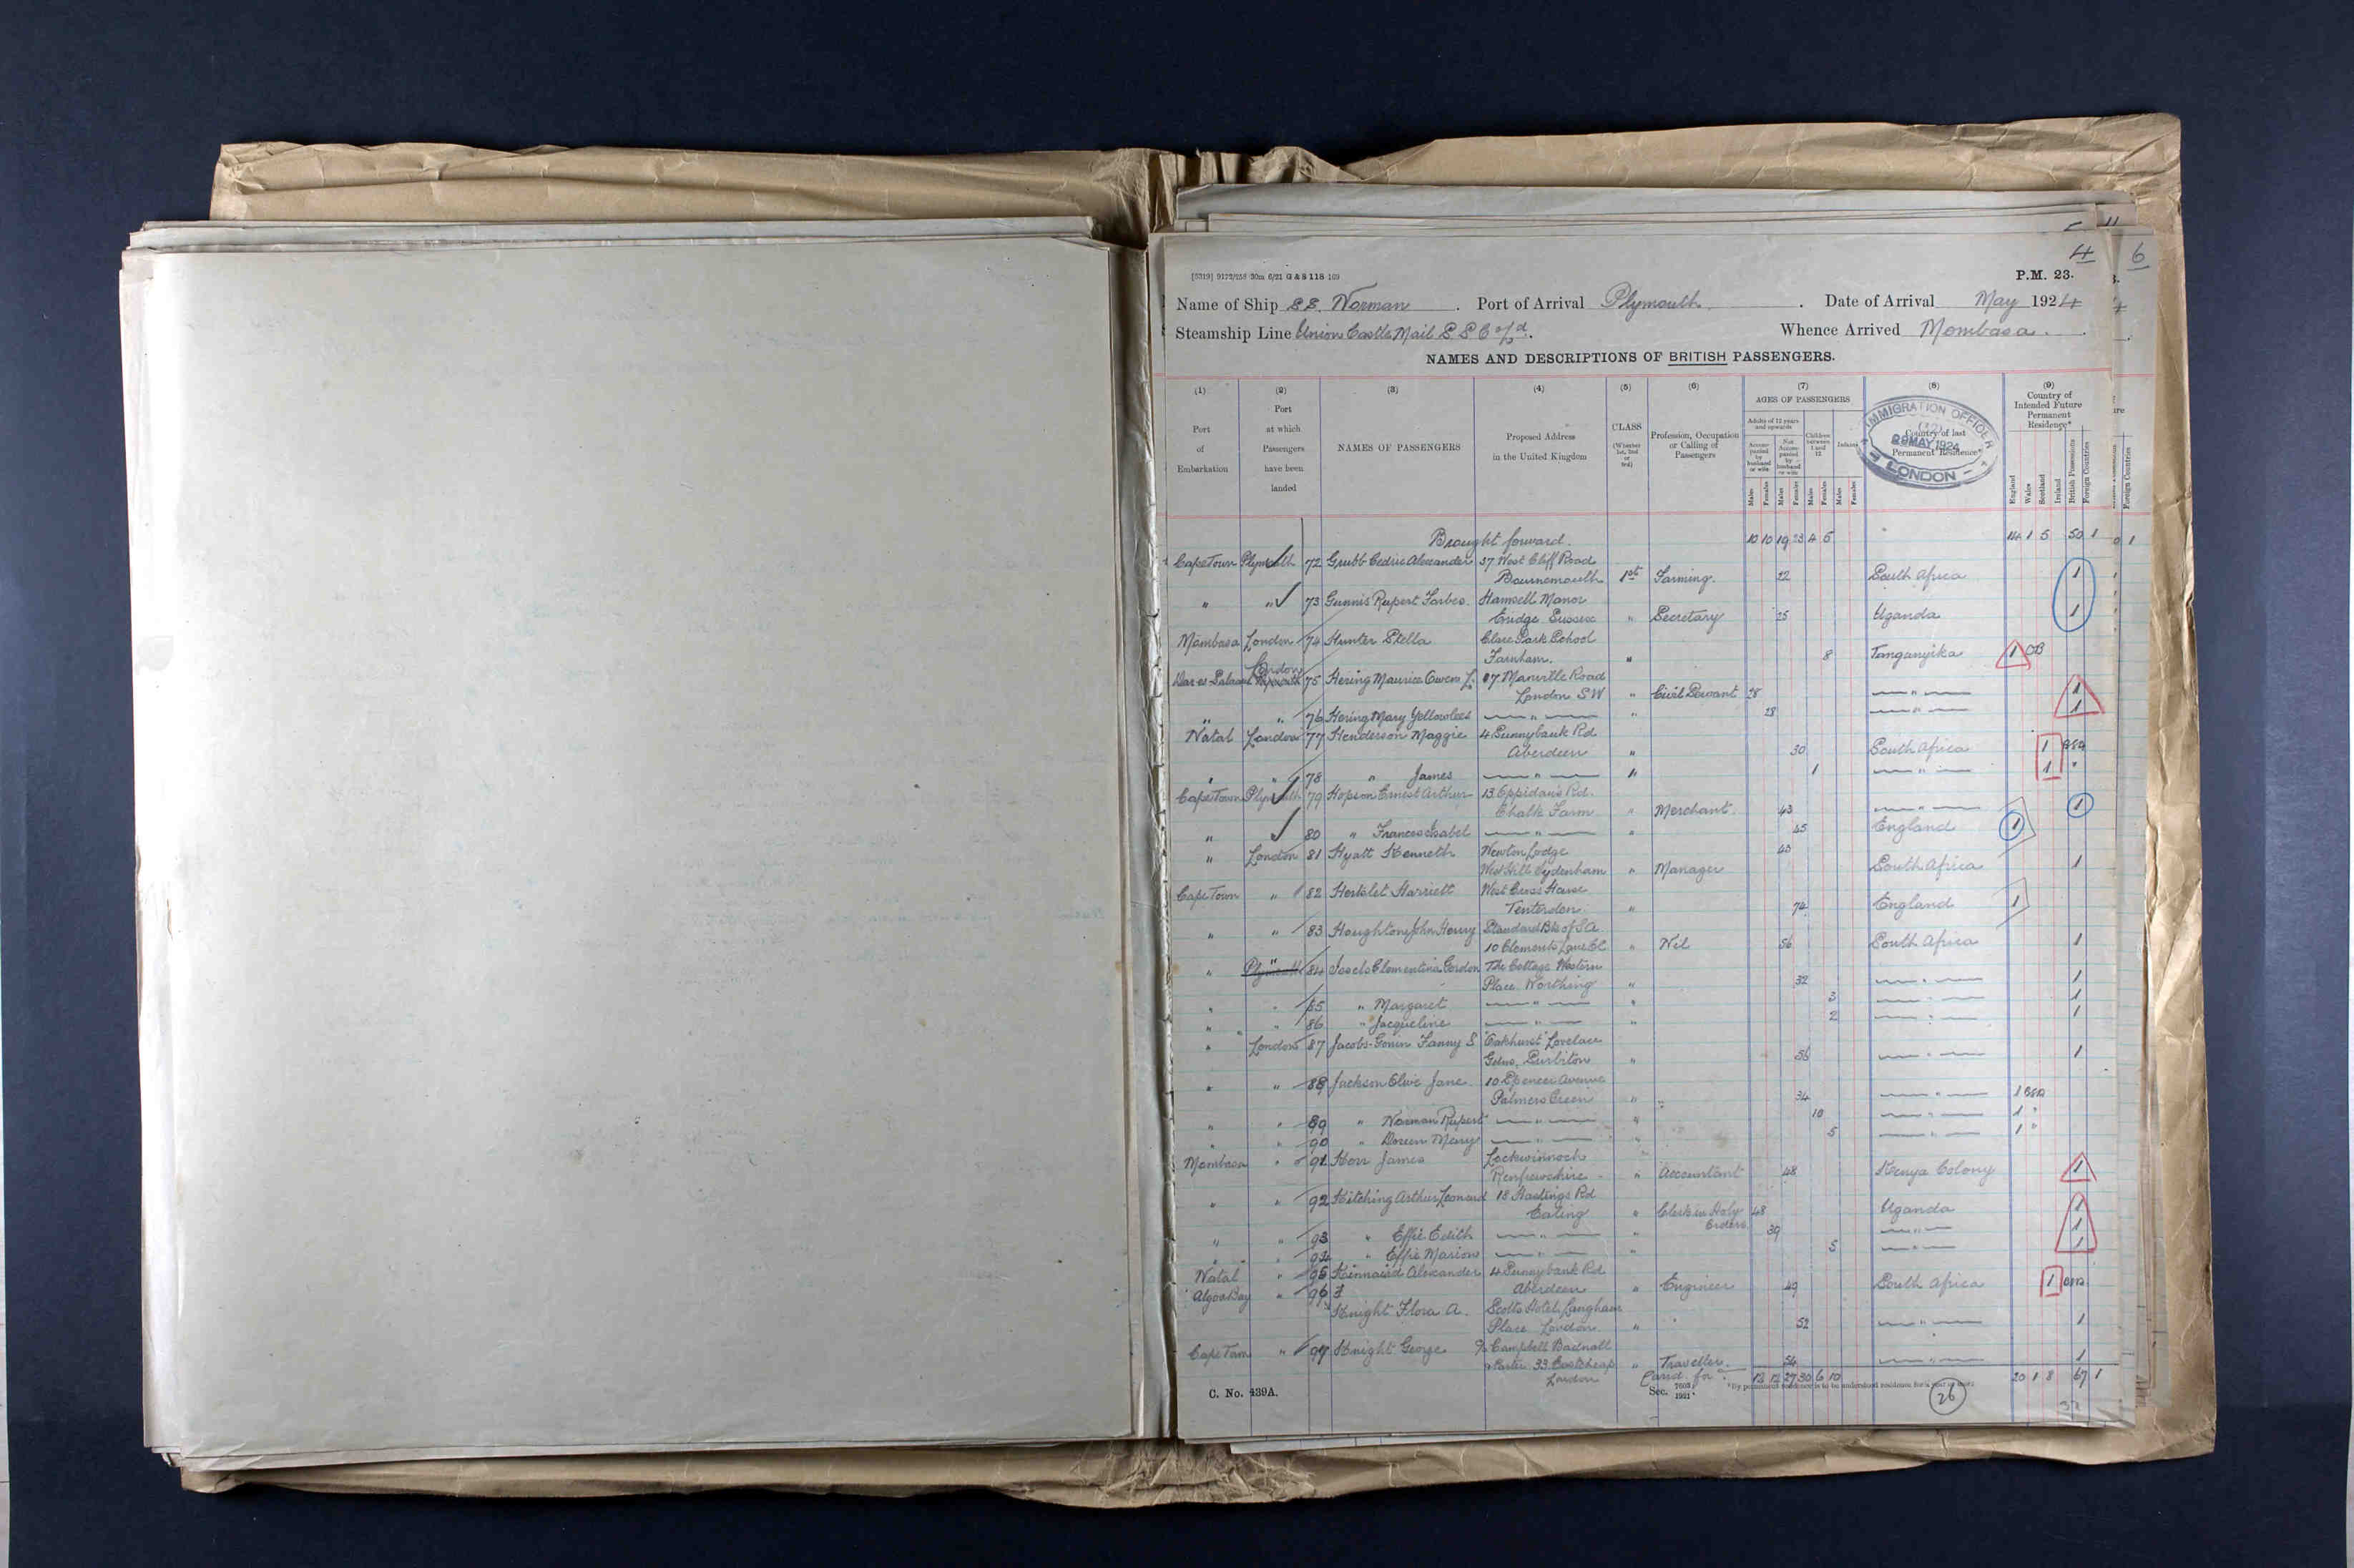 4 6
[5319] 9172/258 30m 6/21 G & S 118 169
P.M. 23.
Name of Ship S.S. Norman . Port of Arrival Plymouth . Date of Arrival May 1924
Steamship Line Union Castle Mail S S Co/Ld. Whence Arrived Mombasa.
NAMES AND DESCRIPTIONS OF BRITISH PASSENGERS.
(1) (2) (3) (4) (5) (6) (7) (8) (9)
Port of Embarkation
Port at which Passengers have been landed
NAMES OF PASSENGERS
Proposed Address in the United Kingdom
CLASS (Whether 1st, 2nd or 3rd)
Profession, Occupation or Calling of Passengers
AGES OF PASSENGERS
Adults of 12 years and upwards
Accompanied by husband or wife
Not Accompanied by husband or wife
Children between 1 and 12
Infants
Males Females Males Females Males Females Males Females
Country of last Permanent Residence*
IMMIGRATION OFFICER
29 MAY 1924
LONDON
Country of Intended Future Permanent Residence*
England Wales Scotland Ireland British Possessions Foreign Countries
Foreign Countries
Brought forward. 10 10 19 23 4 5 14 1 5 50 1
Cape Town Plymouth 72 Grubb Cedric Alexander 37 West Cliff Road
Bournemouth 1st Farming. 22 South Africa 1
" " 73 Gunnis Rupert Forbes. Hamsell Manor
Eridge Sussex " Secretary 25 Uganda 1
Mombasa London 74 Hunter Stella Clare Park School
Farnham. " 8 Tanganyika 1
London
Dar-es-Salaam Plymouth 75 Hering Maurice Owen L. 27 Manville Road
London SW " Civil Servant 28 — " — 1
" " 76 Hering Mary Yellowlees — " — " 28 — " — 1
Natal London 77 Henderson Maggie 4 Sunnybank Rd
Aberdeen " 30 South Africa 1 BSA
" " 78 " James — " — " 1 — " — 1 "
Cape Town Plymouth 79 Hopson Ernest Arthur 13 Eppidans Rd.
Chalk Farm " Merchant. 43 — " — 1
" 80 " Frances Isabel — " — " 45 England 1
" London 81 Hyatt Kenneth Newton Lodge 43
West Hill Sydenham " Manager South Africa 1
Cape Town " 82 Hertslet Harriett West Cross House
Tenterden. " 74 England 1
" " 83 Houghton John Henry Standard Bk of S A
10 Clements Lane EC. " Nil 56 South Africa 1
" Plymouth " 84 Isaacs Clementina Gordon The Cottage Western
Place Worthing " 32 — " — 1
" " 85 " Margaret — " — " 3 — " — 1
" " 86 " Jacqueline — " — " 2 — " — 1
" London 87 Jacobs-Gonin Fanny S "Oakhurst" Lovelace
Gdns, Surbiton " 56 — " — 1
" " 88 Jackson Elsie Jane 10 Spencer Avenue
Palmers Green " 34 — " — 1 BSA
" " 89 " Norman Rupert — " — " 10 — " — 1 "
" " 90 " Doreen Mary — " — " 5 — " — 1 "
Mombasa " 91 Kerr James Lochwinnoch
Renfrewshire " Accountant 48 Kenya Colony 1
" " 92 Kitching Arthur Leonard 18 Hastings Rd
Ealing " Clerk in Holy Orders 48 Uganda 1
" " 93 " Effie Edith — " — " 39 — " — 1
" " 94 " Effie Marion — " — " 5 — " — 1
Natal " 95 Kinnaird Alexander 4 Sunnybank Rd
Algoa Bay " 96 Aberdeen " Engineer 49 South Africa 1
Knight Flora A. Scotts Hotel, Langham
Place London " 52 — " — 1
Cape Town " 97 Knight George c/o Campbell Badnall
Porter 33 Eastcheap " Traveller. 54 — " — 1
London Carrd. for d. 12 12 27 30 6 10 20 1 8 67 1
C. No. 439A. Sec. 7603/1921. *By permanent residence is to be understood residence for a year or more
26